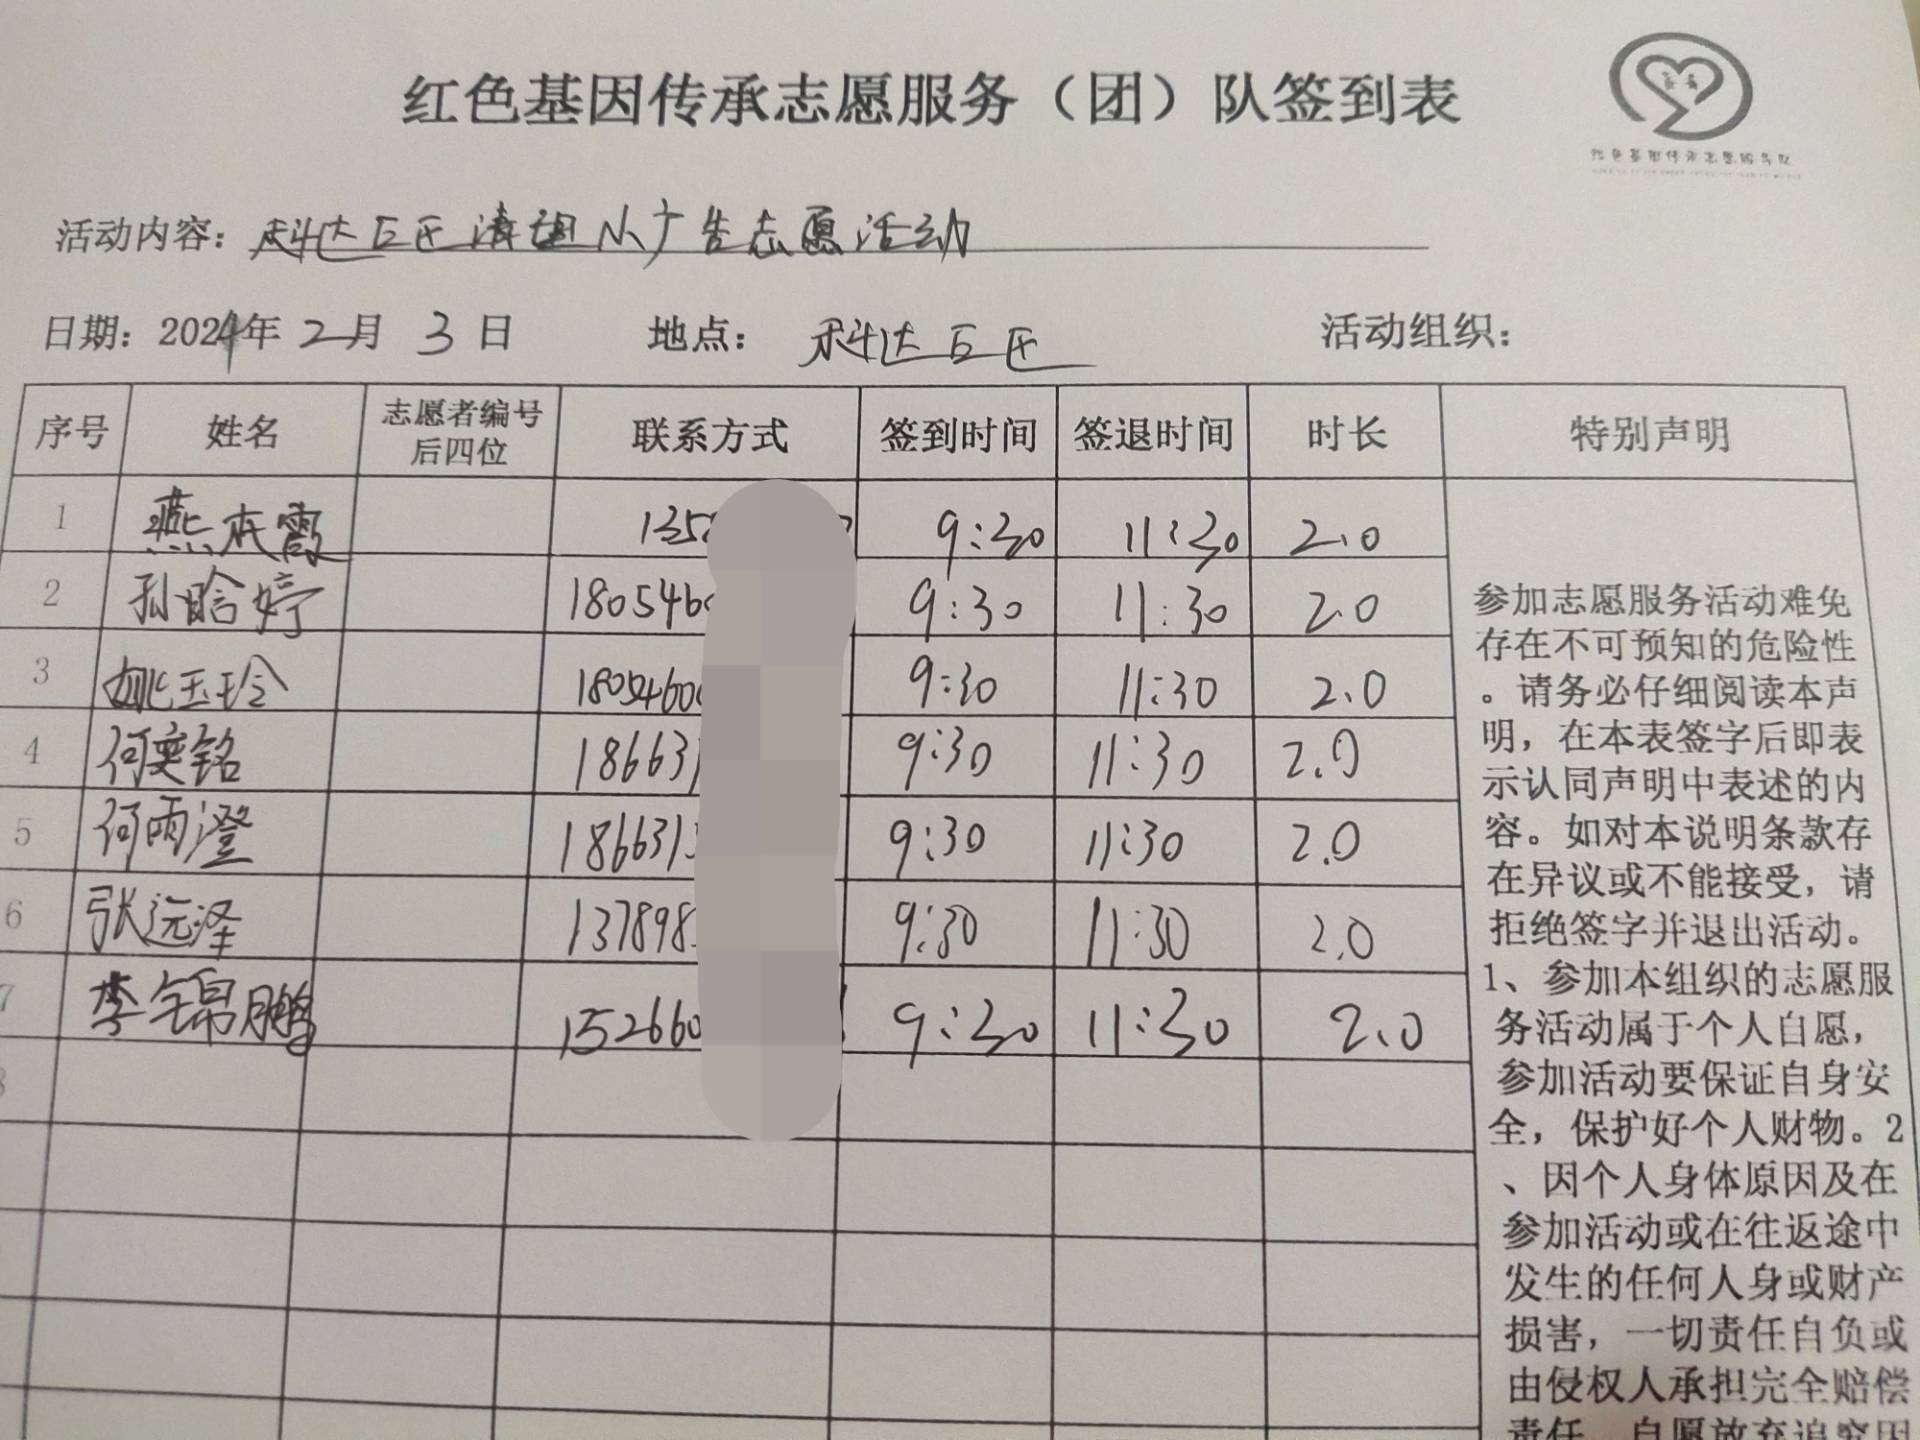 红色基因传承志愿服务（团）队签到表
红色基因传承志愿服务队
活动内容：科达小区清理小广告志愿活动
日期：2024年 2月 3日 地点：科达小区 活动组织：
序号 姓名 志愿者编号后四位 联系方式 签到时间 签退时间 时长 特别声明
1 燕本霞 135 9:30 11:30 2.0
2 孙晗婷 180546 9:30 11:30 2.0
3 姚玉玲 1805460 9:30 11:30 2.0
4 何奕铭 18663 9:30 11:30 2.0
5 何雨澄 186631 9:30 11:30 2.0
6 张远泽 137898 9:30 11:30 2.0
7 李锦鹏 152660 9:30 11:30 2.0
8
参加志愿服务活动难免
存在不可预知的危险性
。请务必仔细阅读本声
明，在本表签字后即表
示认同声明中表述的内
容。如对本说明条款存
在异议或不能接受，请
拒绝签字并退出活动。
1、参加本组织的志愿服
务活动属于个人自愿，
参加活动要保证自身安
全，保护好个人财物。2
、因个人身体原因及在
参加活动或在往返途中
发生的任何人身或财产
损害，一切责任自负或
由侵权人承担完全赔偿
责任，自愿放弃追究因